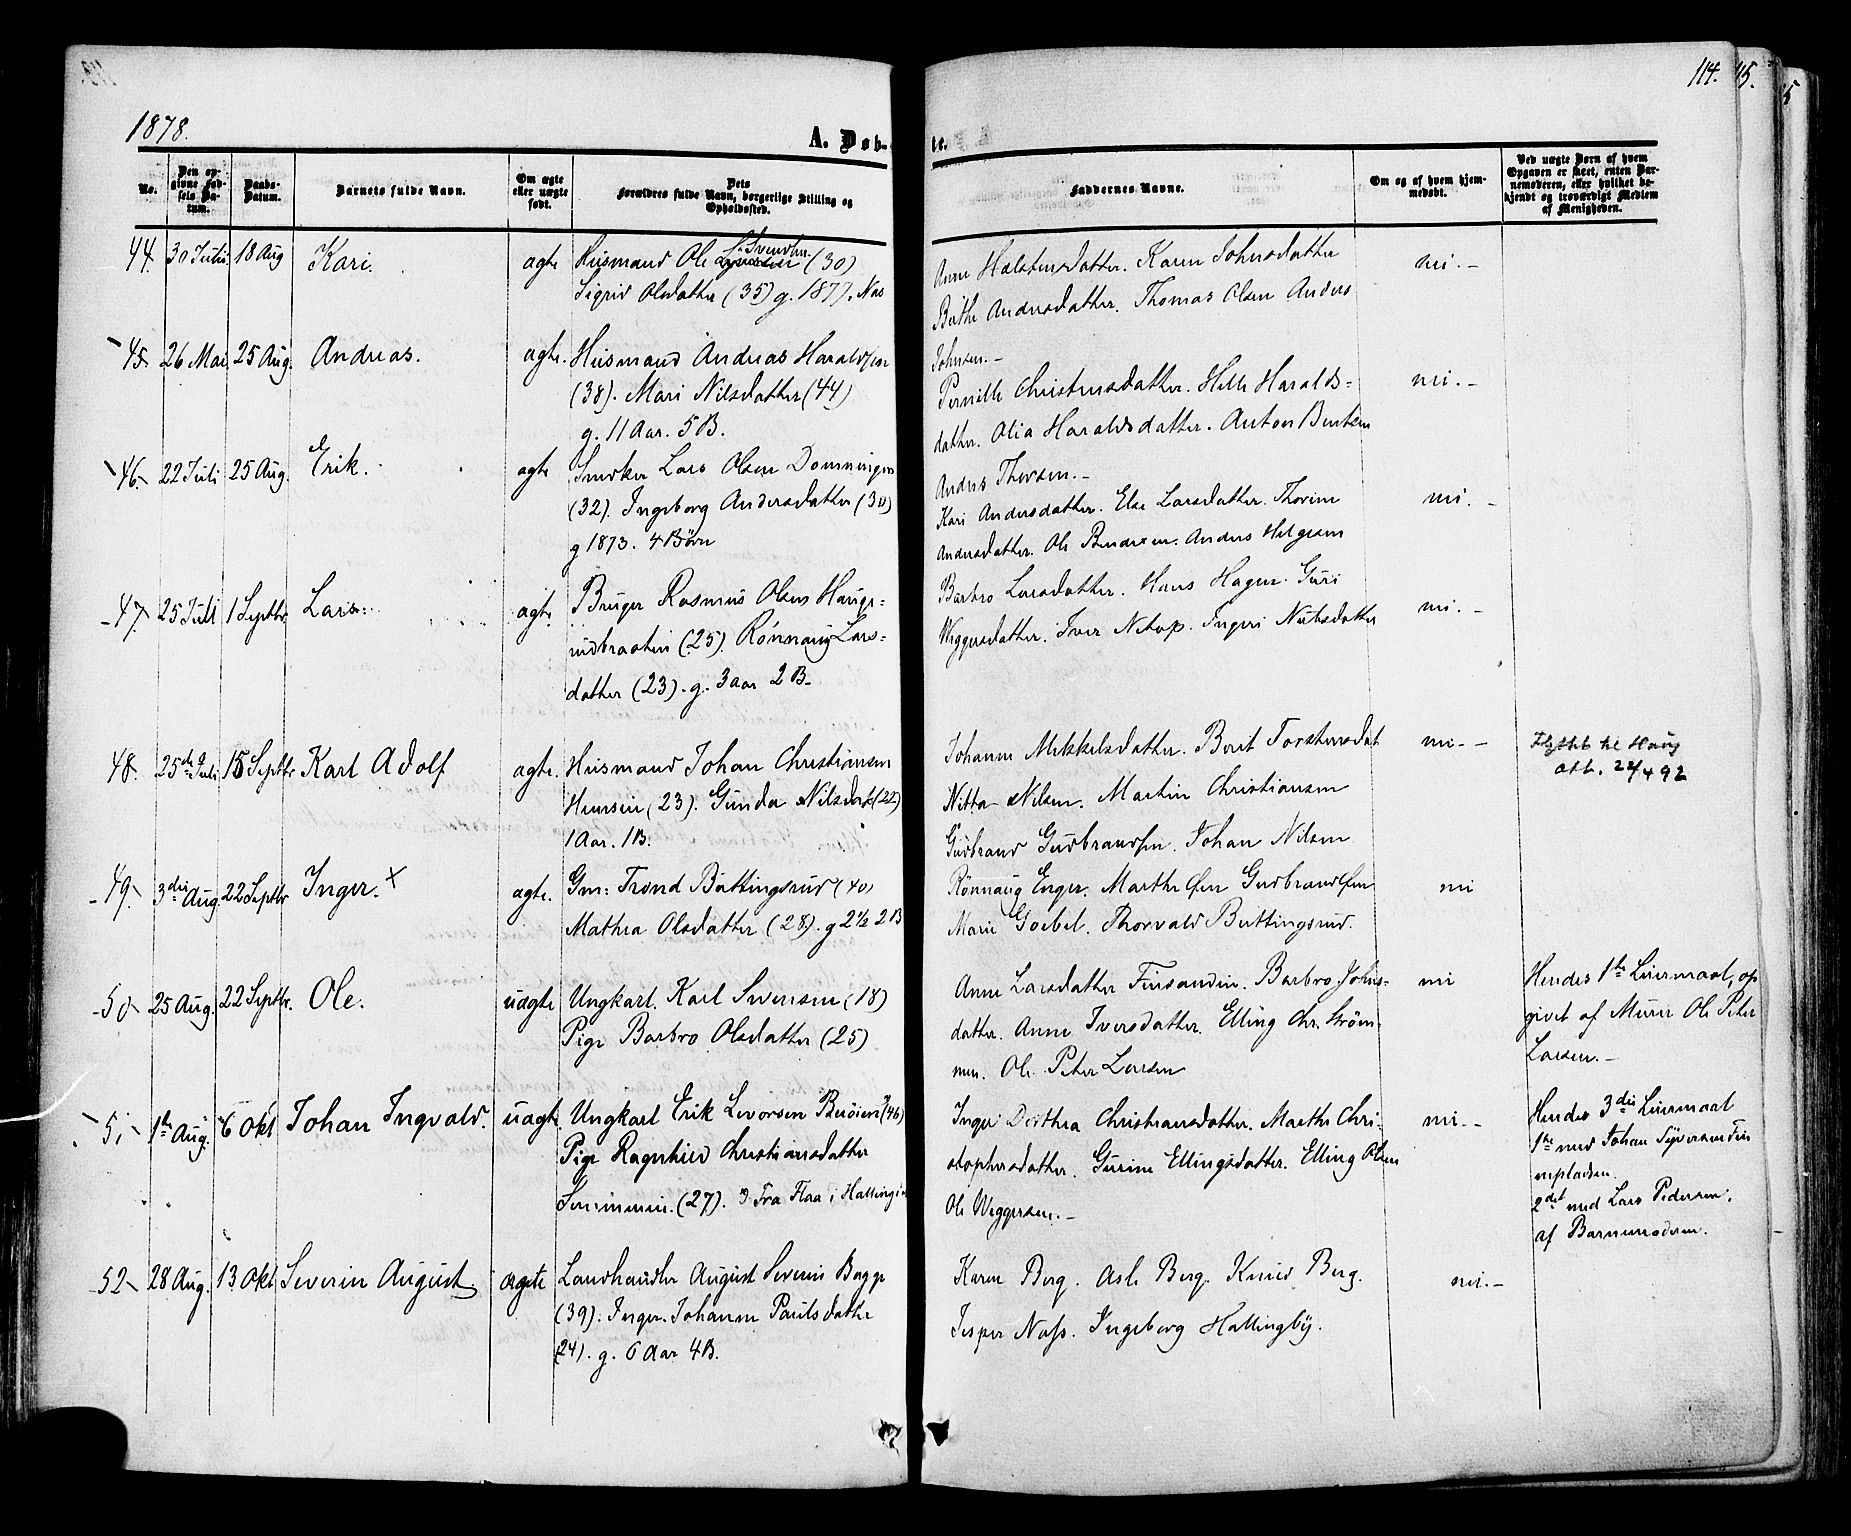 114. 115.
1878.
A. Døb-
te.
No.
Den op-
givne Fød-
sels Da-
tum.
Daabs-
Datum.
Barnets fulde Navn.
Om ægte
eller uægte
født.
Dets
Forældres fulde Navn, borgerlige Stilling og
Opholdssted.
Faddernes Navne.
Om og af hvem hjem-
medøbt.
Ved uægte Børn af hvem
Opgaven er skeet, enten Bar-
nemoderen, eller hvilket be-
kjendt og troværdigt Medlem
af Menigheden.
44. 30 Juli 18 Aug Kari. ægte Husmand Ole Svendsen (30)
Sigrid Olsdatter (35) g. 1877. Næs
Anne Halstensdatter. Karen Johnsdatter
Berthe Andersdatter. Thomas Olsen Anders
Johnsen.-
nei.-
45 26 Mai 25 Aug. Andreas. ægte. Husmand Andreas Haraldsen
(38). Mari Nilsdatter (44)
g. 11 Aar. 5 B.
Pernille Christensdatter. Helle Haralds=
datter. Olia Haraldsdatter. Anton Berntsen
Anders Thorsen.-
nei.-
46. 22 Juli 25 Aug. Erik. ægte Snedker Lars Olsen
(32). Ingeborg Andersdatter (30)
g 1873. 4 Børn
Kari Andersdatter. Else Larsdatter. Thorine
Andersdatter. Ole Anders Helgesen
nei.-
47. 25 Juli 1 Septbr. Lars. ægte. Bruger Rasmus Olsen Haugs=
rudbraaten (25). Rønnaug Lars=
datter (23). g. 3 aar 2 B.
Barbro Larsdatter. Hans Hagen. Guri
Wiggersdatter. Iver Ingeri
nei.-
48. 25de Juli 15 Septbr Karl Adolf ægte. Husmand Johan Christiansen
(23). Gunda Nilsdat (22)
1 Aar. 1 B.
Johanne Mikkelsdatter. Berit Torstensdat
Nilsen. Martin Christiansen
Gudbrand Gudbrandsen. Johan Nilsen
nei.-
Flyttet til Haug
att. 22/4 92
49. 3die Aug 22 Septbr Inger. x ægte. Gm: Trond Buttingsrud (40)
Mathea Olsdatter (28). g 2½ 2 B
Rønnaug Enger. Marthe Gudbrandsen
Marie Goebel. Thorvald Buttingsrud.
nei
50 25 Aug. 22 Septbr. Ole. uægte Ungkarl. Karl Svensen (18)
Pige Barbro Olsdatter (25)
Anne Larsdatter Finsanden. Barbro Johns-
datter. Anne Iversdatter. Elling Chr. Strøm-
men. Ole Peter Larsen
nei
Hendes 1te Leiermaal, op
givet af Murer Ole Peter
Larsen.-
51 1te Aug. 6 Okt Johan Ingvald. uægte. Ungkarl Erik Levorsen (46)
Pige Ragnhild Christiansdatter
(27). Fra Flaa i Hallingd
Inger Dorthea Christiansdatter. Marthe Chri-
stophersdatter. Gurine Ellingsdatter. Elling Olsen
Ole Wiggersen.-
nei.-
Hendes 3die Leiermaal
1te med Johan Syversen
2det med Lars Pedersen.
af Barnemoderen.
52 28 Aug. 13 Okt Severin August ægte Landhandler August Severin Bagge
(39). Inger Johanne Paulsdatter
(24). g. 6 Aar 4 B.
Karen Berg. Asle Berg. Knud Berg.
Jesper Næss. Ingeborg Hallingby.
nei.-